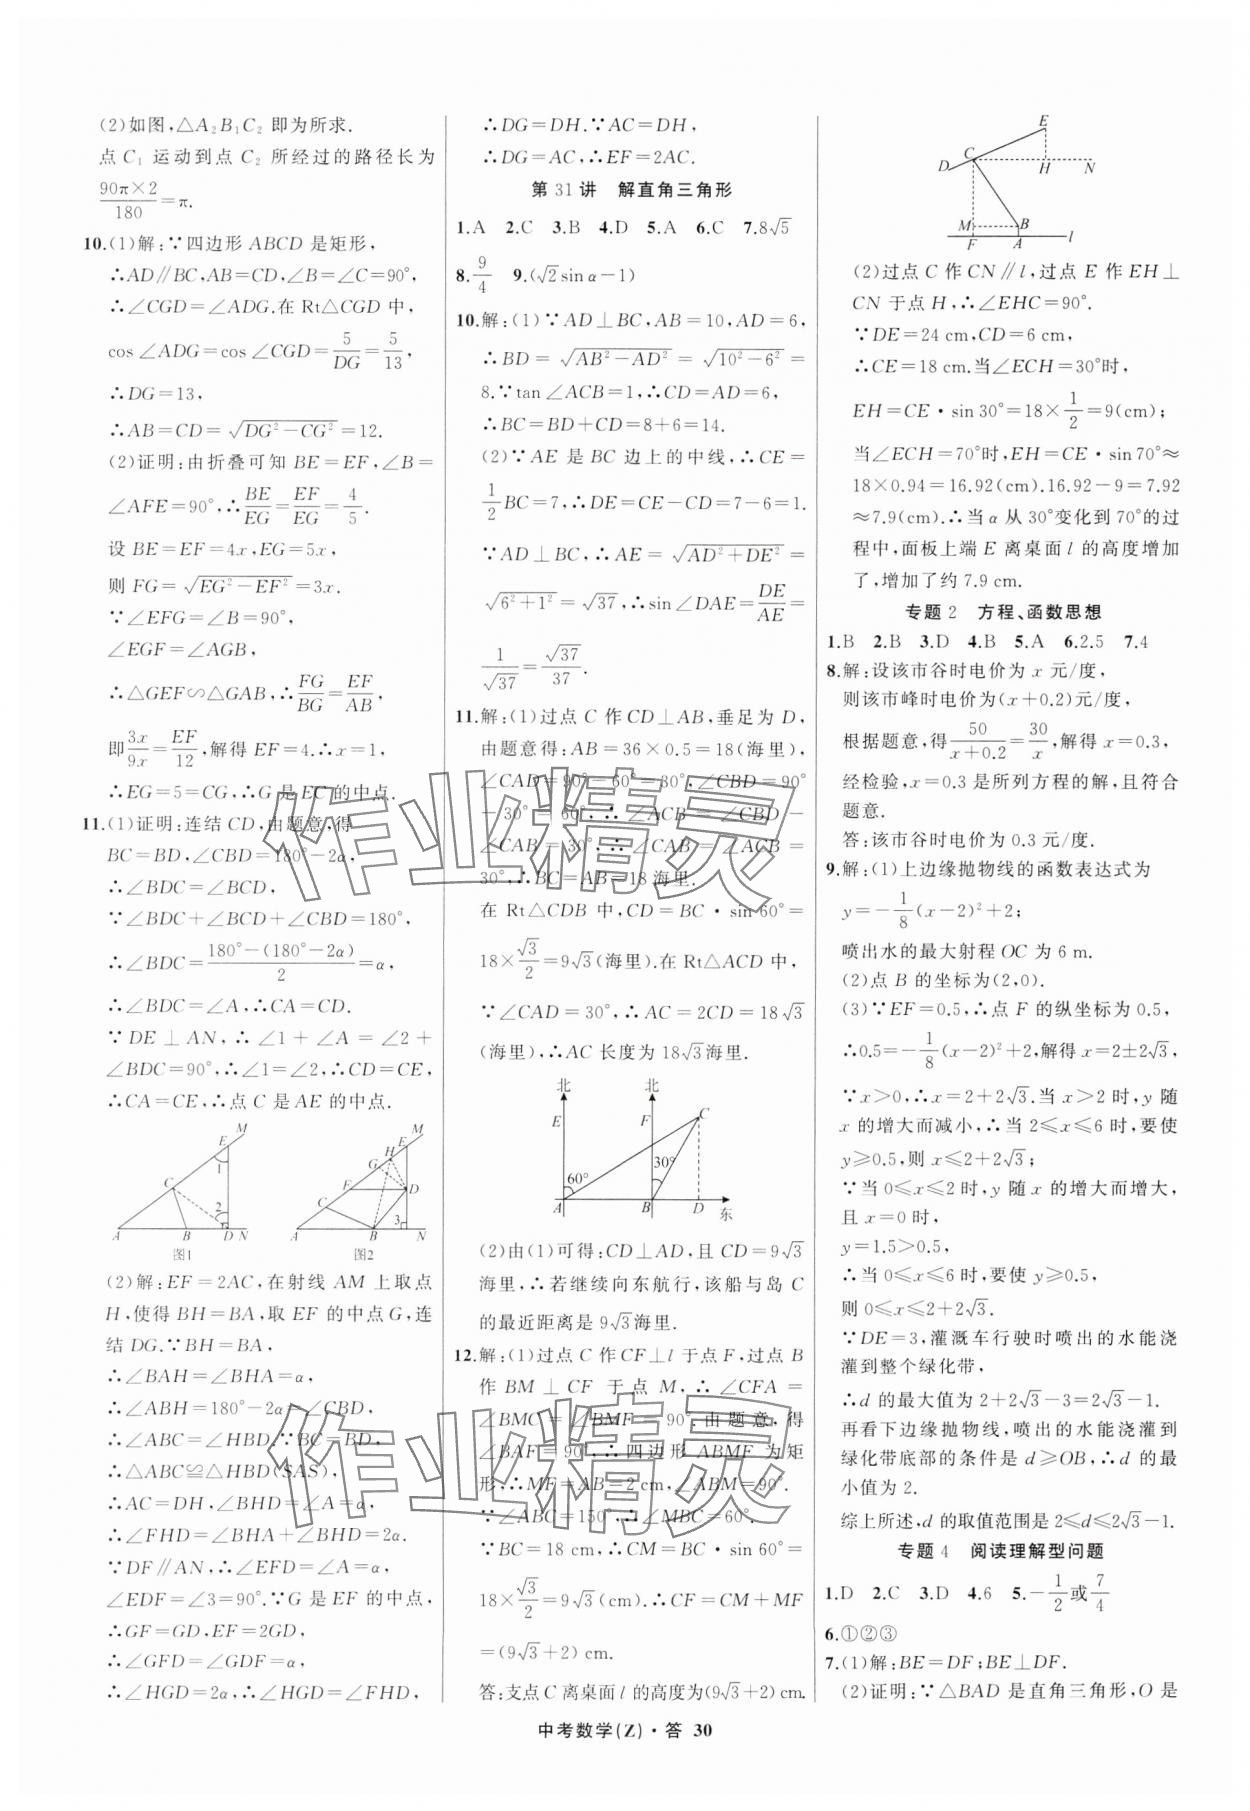 (2)如图,△A₂B₁C₂ 即为所求.
点 C₁ 运动到点 C₂ 所经过的路径长为
90π×2/180=π.
10.(1)解:∵四边形 ABCD 是矩形,
∴AD∥BC,AB=CD,∠B=∠C=90°,
∴∠CGD=∠ADG.在 Rt△CGD 中,
cos∠ADG=cos∠CGD=5/DG=5/13,
∴DG=13,
∴AB=CD=√(DG²-CG²)=12.
(2)证明:由折叠可知 BE=EF,∠B=
∠AFE=90°,∴BE/EG=EF/EG=4/5.
设 BE=EF=4x,EG=5x,
则 FG=√(EG²-EF²)=3x.
∵∠EFG=∠B=90°,
∠EGF=∠AGB,
∴△GEF∽△GAB,∴FG/BG=EF/AB,
即3x/9x=EF/12,解得 EF=4.∴x=1,
∴EG=5=CG,∴G 是 EC 的中点.
11.(1)证明:连结 CD,由题意,得
BC=BD,∠CBD=180°-2α,
∴∠BDC=∠BCD,
∵∠BDC+∠BCD+∠CBD=180°,
∴∠BDC=(180°-(180°-2α))/2=α,
∴∠BDC=∠A,∴CA=CD.
∵DE⊥AN,∴∠1+∠A=∠2+
∠BDC=90°,∴∠1=∠2,∴CD=CE,
∴CA=CE,∴点 C 是 AE 的中点.
M
E
1
C
2
A
B
D
N
图1
M
E
H
G
F
D
C
3
A
B
N
图2
(2)解:EF=2AC,在射线 AM 上取点
H,使得 BH=BA,取 EF 的中点 G,连
结 DG.∵BH=BA,
∴∠BAH=∠BHA=α,
∴∠ABH=180°-2α=∠CBD,
∴∠ABC=∠HBD.∵BC=BD,
∴△ABC≌△HBD(SAS),
∴AC=DH,∠BHD=∠A=α,
∴∠FHD=∠BHA+∠BHD=2α.
∵DF∥AN,∴∠EFD=∠A=α,
∠EDF=∠3=90°.∵G 是 EF 的中点,
∴GF=GD,EF=2GD,
∴∠GFD=∠GDF=α,
∴∠HGD=2α,∴∠HGD=∠FHD,
∴DG=DH.∵AC=DH,
∴DG=AC,∴EF=2AC.
第 31 讲 解直角三角形
1.A 2.C 3.B 4.D 5.A 6.C 7.8√5
8.9/4 9.(√2sin α-1)
10.解:(1)∵AD⊥BC,AB=10,AD=6,
∴BD=√(AB²-AD²)=√(10²-6²)=
8.∵tan∠ACB=1,∴CD=AD=6,
∴BC=BD+CD=8+6=14.
(2)∵AE 是 BC 边上的中线,∴CE=
1/2BC=7,∴DE=CE-CD=7-6=1.
∵AD⊥BC,∴AE=√(AD²+DE²)=
√(6²+1²)=√37,∴sin∠DAE=DE/AE=
1/√37=√37/37.
11.解:(1)过点 C 作 CD⊥AB,垂足为 D,
由题意得:AB=36×0.5=18(海里),
∠CAD=90°-60°=30°,∠CBD=90°
-30°=60°,∴∠ACB=∠CBD-
∠CAB=30°,∴∠CAB=∠ACB=
30°,∴BC=AB=18 海里.
在 Rt△CDB 中,CD=BC·sin 60°=
18×√3/2=9√3(海里).在 Rt△ACD 中,
∵∠CAD=30°,∴AC=2CD=18√3
(海里),∴AC 长度为 18√3海里.
北
北
E
F
C
60°
30°
A
B
D
东
(2)由(1)可得:CD⊥AD,且 CD=9√3
海里,∴若继续向东航行,该船与岛 C
的最近距离是 9√3海里.
12.解:(1)过点 C 作 CF⊥l 于点 F,过点 B
作 BM⊥CF 于点 M,∴∠CFA=
∠BMC=∠BMF=90°.由题意,得
∠BAF=90°,∴四边形 ABMF 为矩
形,∴MF=AB=2 cm,∠ABM=90°.
∵∠ABC=150°,∴∠MBC=60°.
∵BC=18 cm,∴CM=BC·sin 60°=
18×√3/2=9√3(cm).∴CF=CM+MF
=(9√3+2) cm.
答:支点 C 离桌面 l 的高度为(9√3+2) cm.
E
C
D
H
N
M
B
F
A
l
(2)过点 C 作 CN∥l,过点 E 作 EH⊥
CN 于点 H,∴∠EHC=90°.
∵DE=24 cm,CD=6 cm,
∴CE=18 cm.当∠ECH=30°时,
EH=CE·sin 30°=18×1/2=9(cm);
当∠ECH=70°时,EH=CE·sin 70°≈
18×0.94=16.92(cm).16.92-9=7.92
≈7.9(cm).∴当 α 从 30°变化到 70°的过
程中,面板上端 E 离桌面 l 的高度增加
了,增加了约 7.9 cm.
专题 2 方程、函数思想
1.B 2.B 3.D 4.B 5.A 6.2.5 7.4
8.解:设该市谷时电价为 x 元/度,
则该市峰时电价为(x+0.2)元/度,
根据题意,得50/(x+0.2)=30/x,解得 x=0.3,
经检验,x=0.3 是所列方程的解,且符合
题意.
答:该市谷时电价为 0.3 元/度.
9.解:(1)上边缘抛物线的函数表达式为
y=-1/8(x-2)²+2;
喷出水的最大射程 OC 为 6 m.
(2)点 B 的坐标为(2,0).
(3)∵EF=0.5,∴点 F 的纵坐标为 0.5,
∴0.5=-1/8(x-2)²+2,解得 x=2±2√3,
∵x>0,∴x=2+2√3.当 x>2 时,y 随
x 的增大而减小,∴当 2≤x≤6 时,要使
y≥0.5,则 x≤2+2√3;
∵当 0≤x≤2 时,y 随 x 的增大而增大,
且 x=0 时,
y=1.5>0.5,
∴当 0≤x≤6 时,要使 y≥0.5,
则 0≤x≤2+2√3.
∵DE=3,灌溉车行驶时喷出的水能浇
灌到整个绿化带,
∴d 的最大值为 2+2√3-3=2√3-1.
再看下边缘抛物线,喷出的水能浇灌到
绿化带底部的条件是 d≥OB,∴d 的最
小值为 2.
综上所述,d 的取值范围是 2≤d≤2√3-1.
专题 4 阅读理解型问题
1.D 2.C 3.D 4.6 5.-1/2或7/4
6.①②③
7.(1)解:BE=DF;BE⊥DF.
(2)证明:∵△BAD 是直角三角形,O 是
中考数学(Z)·答 30
作业精灵
作业精灵